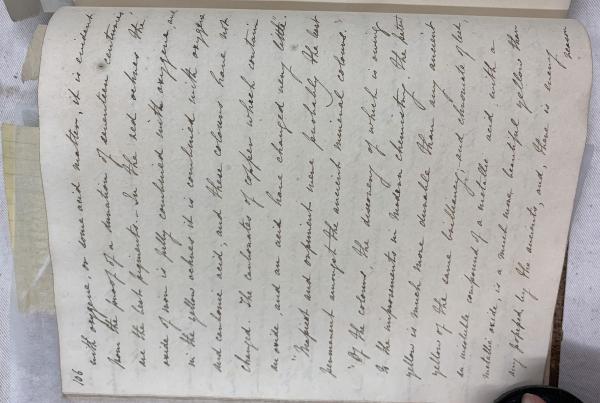 106
with oxygene, or some acid matter, it is evident
from the proof of a duration of seventeen centuries
are the best pigments. - In the red ochres the
oxide of iron is fully combined with oxygene, and
in the yellow ochres it is combined with oxygene
and carbonic acid; and these colours have not
changed. The carbonates of copper which contain
an oxide, and an acid have changed very little."
"Massicot and orpiment were probably the least
permanent amongst the ancient mineral colours."
"Of the colours, the discovery of which is owing
to the improvements in modern chemistry, the patent
yellow is much more durable than any ancient
yellow of the same brilliancy; and chromate of lead,
an insoluble compound of a metallic acid with a
metallic oxide, is a much more beautiful yellow than
any possessed by the ancients, and, there is every
reason